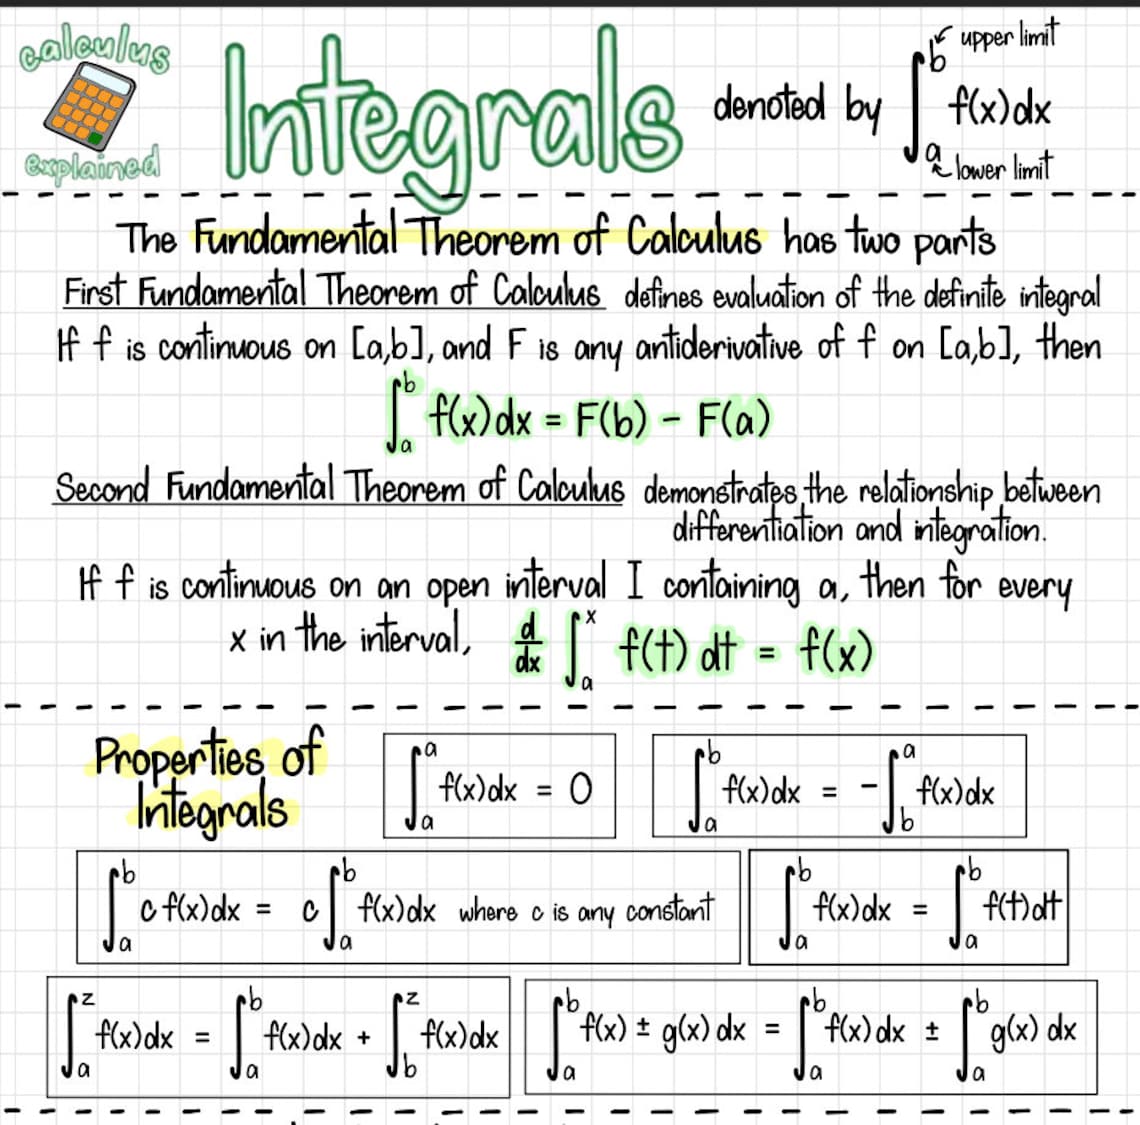 calculus
explained
Integrals
denoted by ∫_a^b f(x)dx
upper limit
lower limit
The Fundamental Theorem of Calculus has two parts
First Fundamental Theorem of Calculus defines evaluation of the definite integral
If f is continuous on [a,b], and F is any antiderivative of f on [a,b], then
∫_a^b f(x)dx = F(b) - F(a)
Second Fundamental Theorem of Calculus demonstrates the relationship between
differentiation and integration.
If f is continuous on an open interval I containing a, then for every
x in the interval, d/dx ∫_a^x f(t) dt = f(x)
Properties of
Integrals
∫_a^a f(x)dx = 0
∫_a^b f(x)dx = -∫_b^a f(x)dx
∫_a^b c f(x)dx = c∫_a^b f(x)dx where c is any constant
∫_a^b f(x)dx = ∫_a^b f(t)dt
∫_a^z f(x)dx = ∫_a^b f(x)dx + ∫_b^z f(x)dx
∫_a^b f(x) ± g(x) dx = ∫_a^b f(x) dx ± ∫_a^b g(x) dx